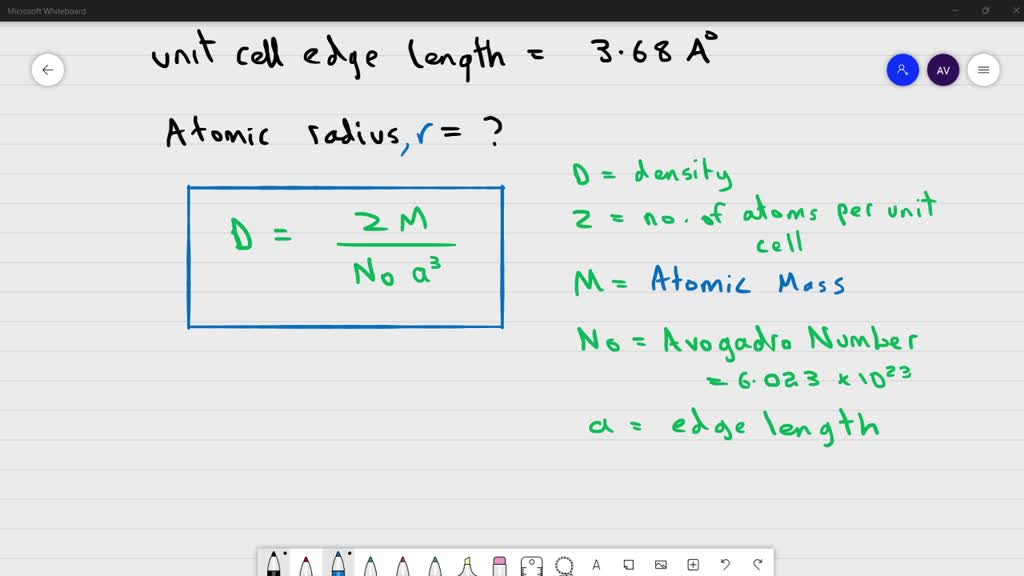 Microsoft Whiteboard
unit cell edge length = 3.68 A°
AV
Atomic radius, r = ?
D = Z M / N₀ a³
D = density
Z = no. of atoms per unit
cell
M = Atomic Mass
N₀ = Avogadro Number
= 6.023 × 10²³
a = edge length
A